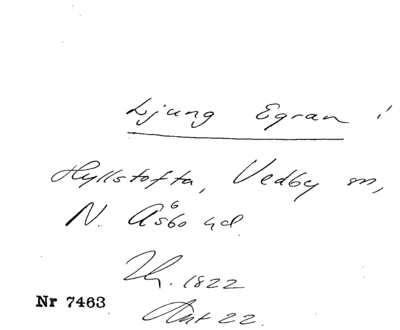 Ljung Egran i
Hyllstofta, Vedby sn,
N. Åsbo hd.
Th. 1822
Ant 22.
Nr 7463